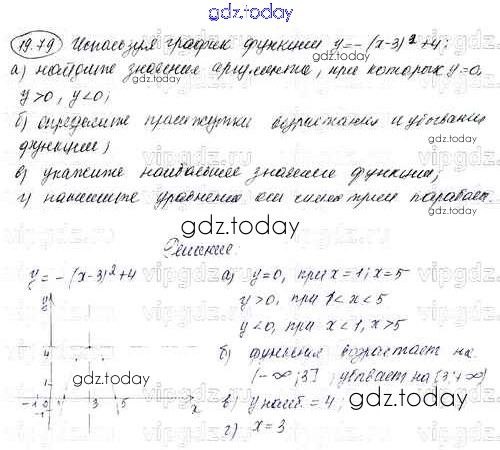 gdz.today
19.79 Используя график функции y = -(x-3)² + 4:
а) найдите значения аргумента, при которых y=0,
y>0, y<0;
б) определите промежутки возрастания и убывания
функции;
в) укажите наибольшее значение функции;
г) напишите уравнение оси симметрии параболы.
Решение:
y = -(x-3)²+4
а) y=0, при x=1; x=5
y>0, при 1<x<5
y<0, при x<1, x>5
б) функция возрастает на
(-∞; 3], убывает на [3; +∞)
в) y наиб. = 4;
г) x=3
y
4
1
-1 0 1 3 5 x
-1
gdz.today